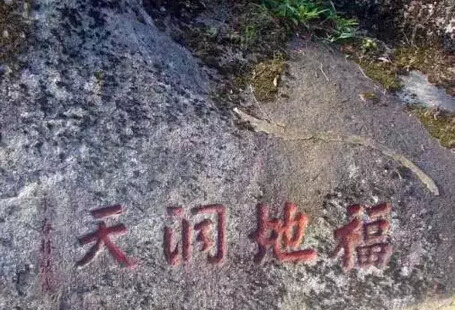 福地洞天